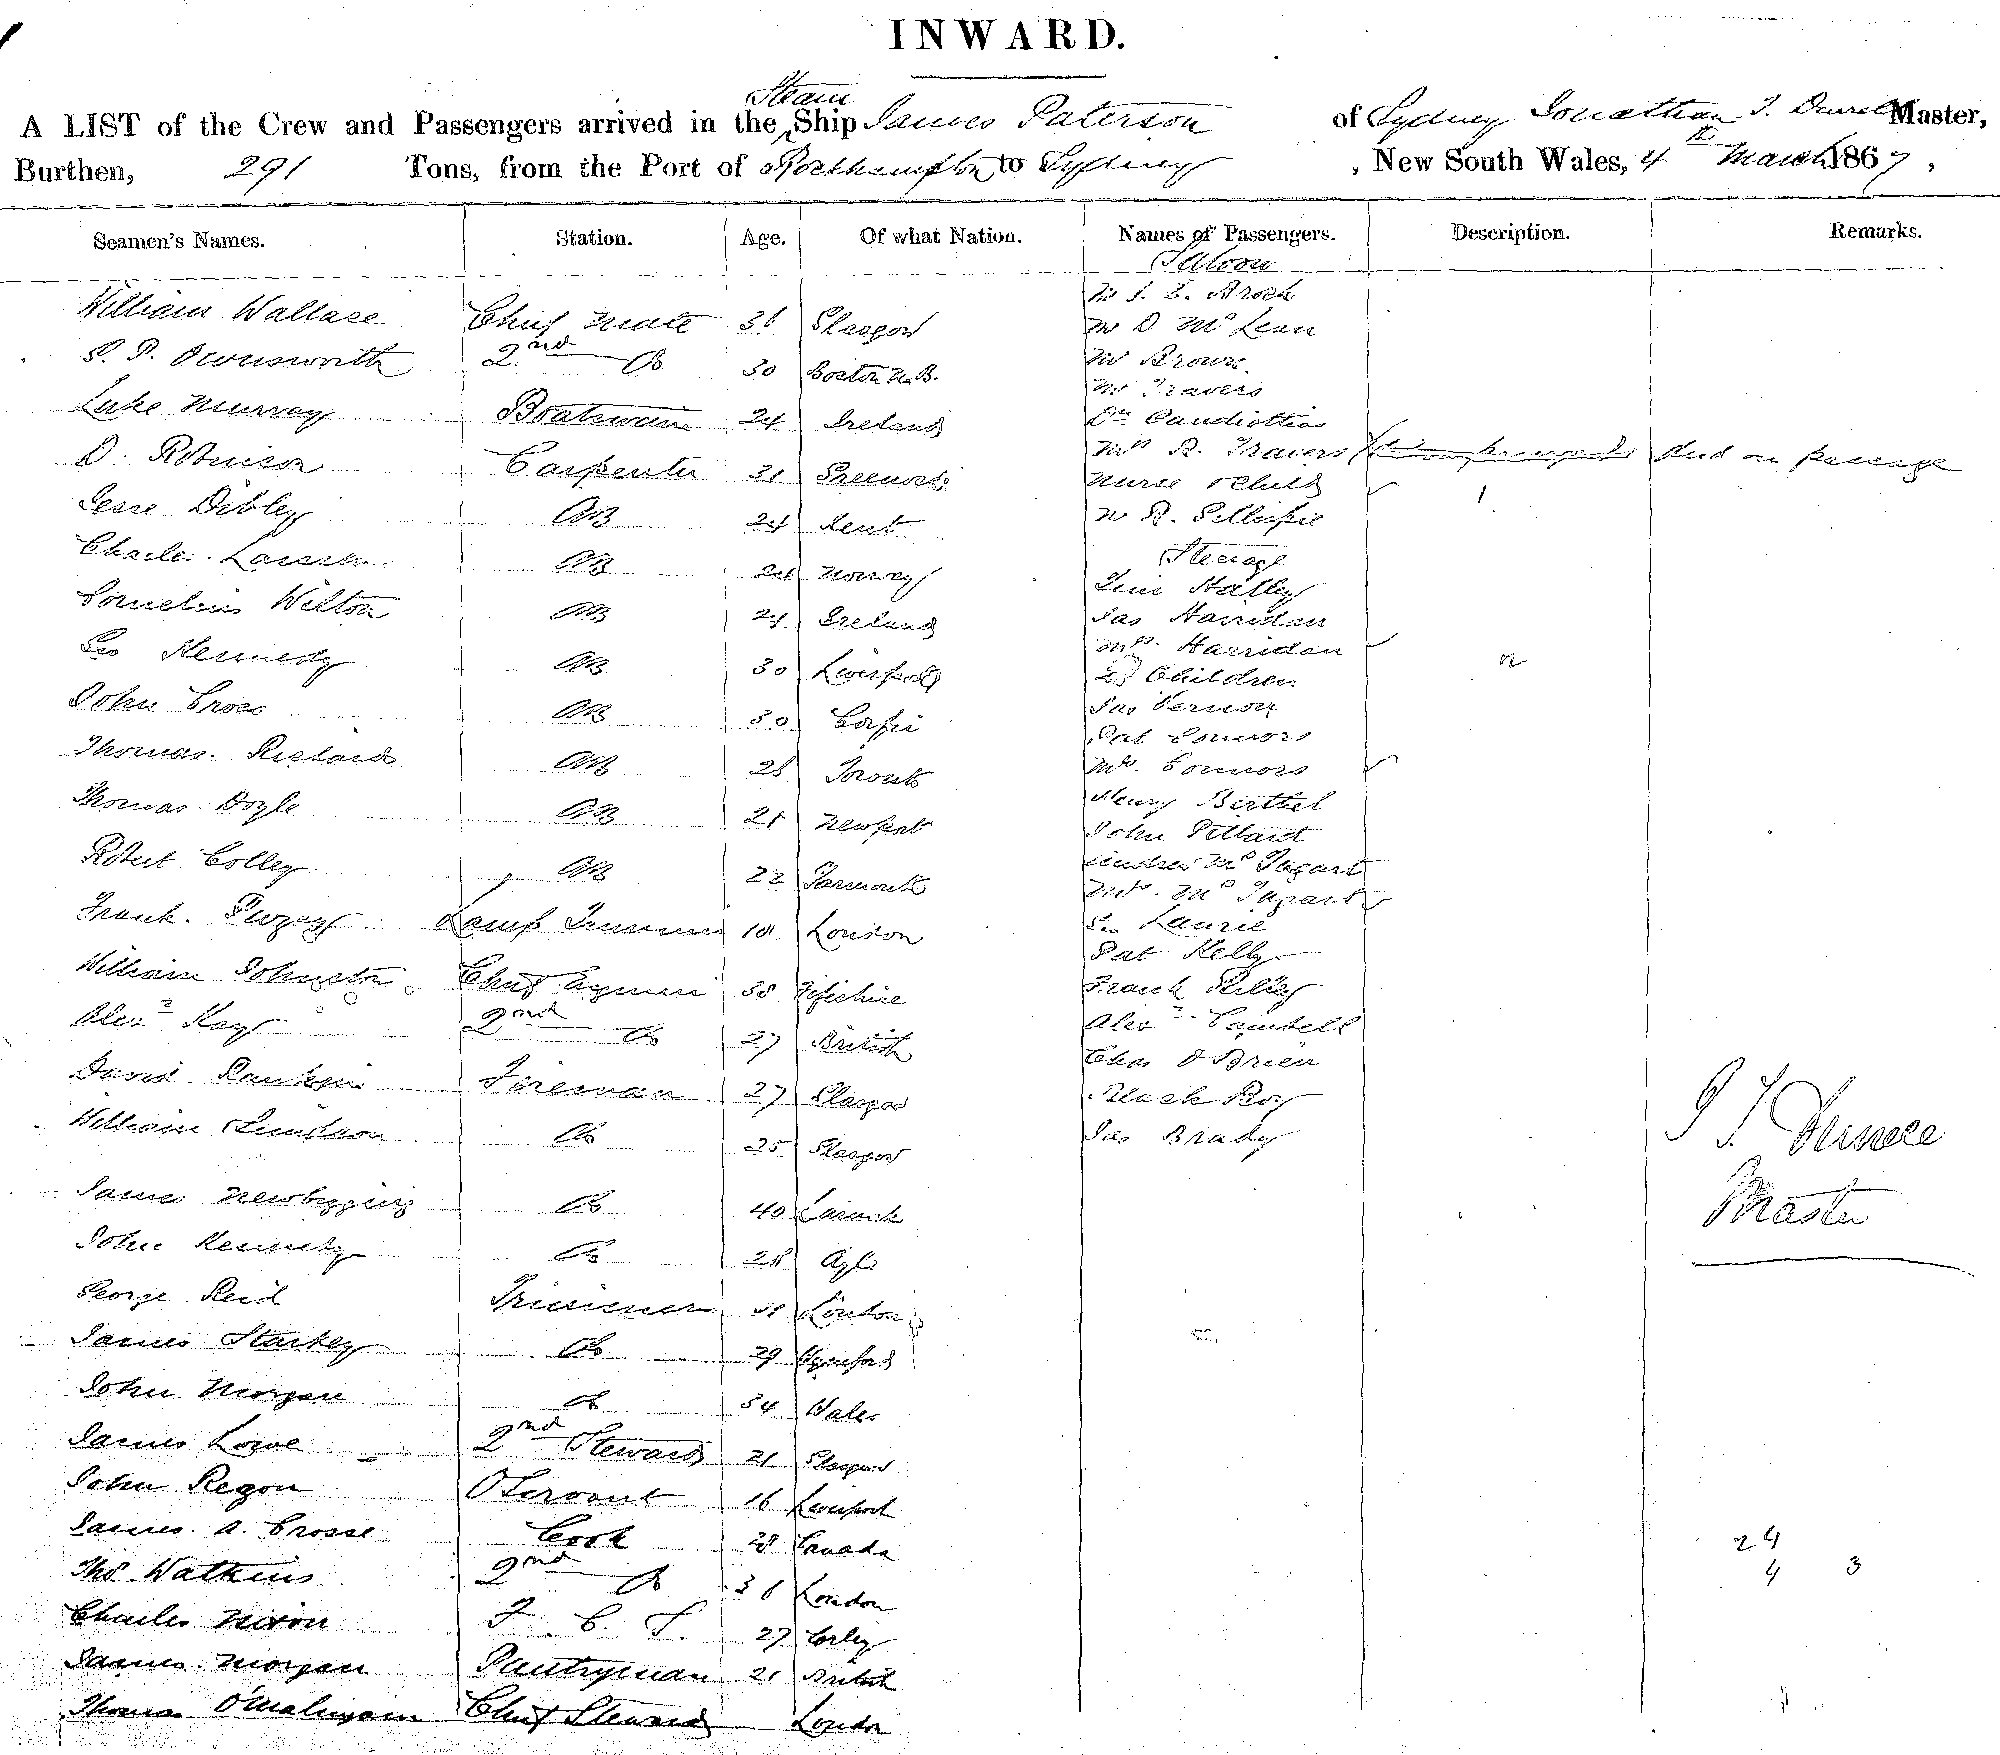 INWARD.
A LIST of the Crew and Passengers arrived in the Steam Ship James Paterson of Sydney Jonathan T. Master,
Burthen, 291 Tons, from the Port of Rockhampton to Sydney, New South Wales, 4th March 1867,
Seamen's Names. Station. Age. Of what Nation. Names of Passengers. Description. Remarks.
Saloon
William Wallace Chief Mate 36 Glasgow
S. P. 2nd Do 30 Boston N.B.
Luke Murray Boatswain 24 Ireland
D. Robinson Carpenter 31 Greenock
Jesse Dibley AB 24 Kent
Charles AB 24 Norway
Cornelius Wilton AB 24 Ireland
Geo Kennedy AB 30 Liverpool
John Cross AB 30 Corfu
Thomas AB 28 Toronto
Thomas Doyle AB 21 Newport
Robert Colley AB 22 Yarmouth
Frank. Lamp Trimmer 18 London
William Johnston Chief 38 Fifeshire
Alexr Kay 2nd Do 27 British
David Rankin Fireman 27 Glasgow
William Do 25 Glasgow
James Newbigging Do 40 Lanark
John Kennedy Do 28
George Reid Trimmer London
James Starkey Do 29 Hereford
John Morgan Do 34 Wales
James Lowe 2nd Steward 21 Glasgow
John Regan O Servant 16 Liverpool
James. A. Crosse Cook 28 Canada
Thos Watkins 2nd Do 36 London
Charles Nixon F. C. S. 27
James Morgan Pantryman 21 British
Thomas Chief Steward London
Mr
Mr D McLean
Mr Brown
Mr Travers
Dr Candiottis
Mrs R. Travers died on passage
Nurse & Child 1
Mr R. Gillespie
Steerage
Jim Halley
Jas Harridan
Mrs. Harridan
2 Children 2
Jas Vernon
Pat Connors
Mrs. Connors
Henry Berthel
John
Andrew McTagart
Mrs. McTagart
Geo Laurie
Pat Kelly
Frank
Alexr Cambell
Chas O Brien
Black Boy
Jas Brady
J T
Master
24
4 3